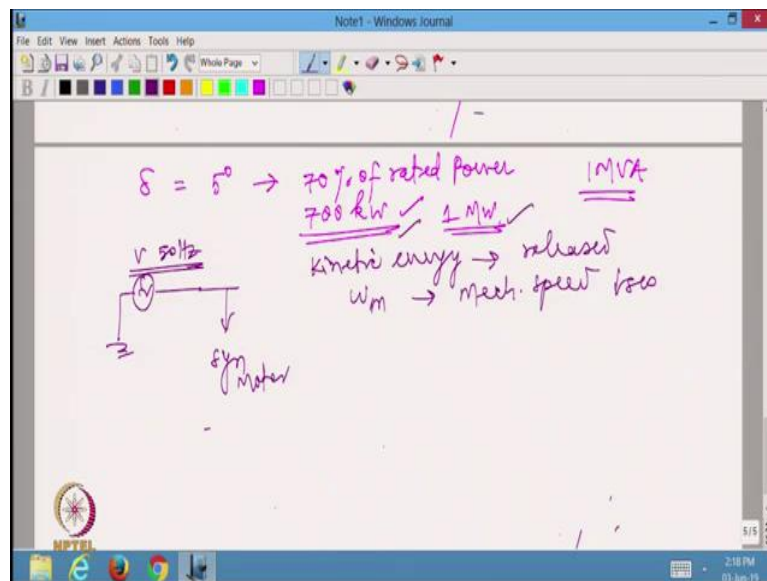 Note1 - Windows Journal
File Edit View Insert Actions Tools Help
Whole Page
B I
δ = 5° → 70% of rated Power 1MVA
700 kW ✓ 1 MW ✓
V 50Hz
kinetic energy → released
ωm → Mech. speed
syn
motor
5/5
NPTEL
2:18 PM
03-Jun-15